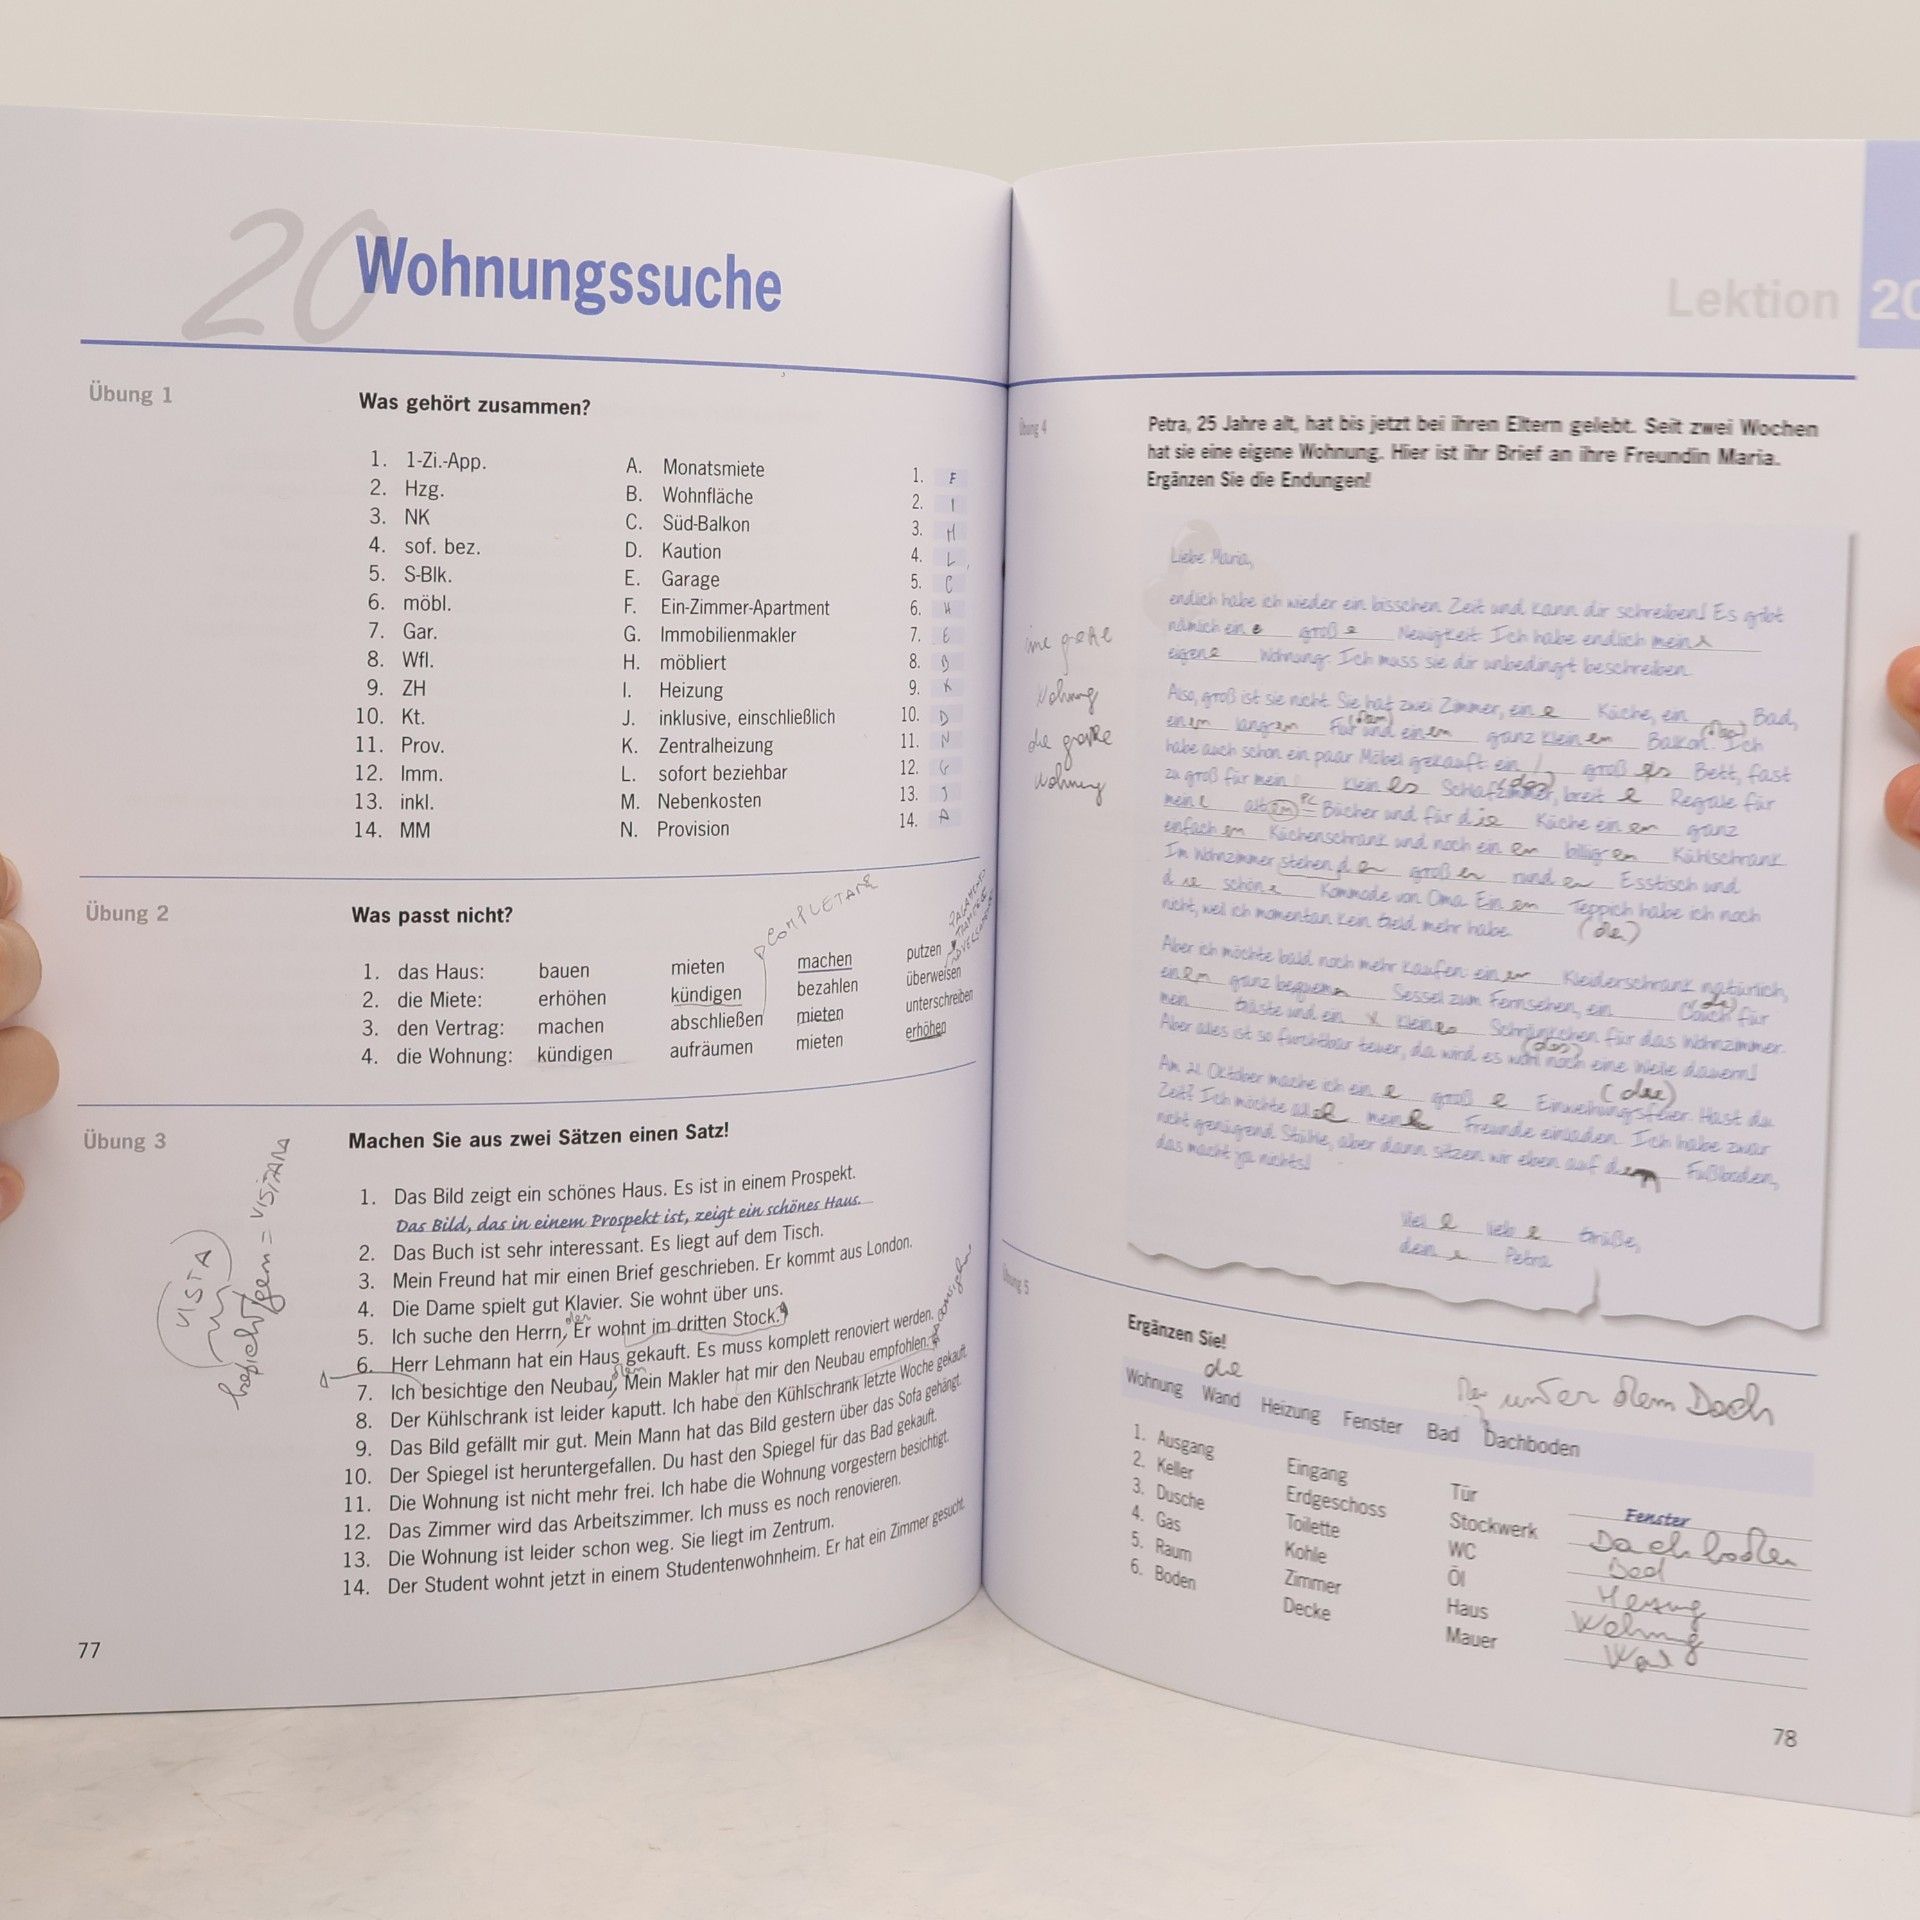 20 Wohnungssuche
Übung 1
Was gehört zusammen?
1. 1-Zi.-App. A. Monatsmiete 1. F
2. Hzg. B. Wohnfläche 2. I
3. NK C. Süd-Balkon 3. H
4. sof. bez. D. Kaution 4. L
5. S-Blk. E. Garage 5. C
6. möbl. F. Ein-Zimmer-Apartment 6. H
7. Gar. G. Immobilienmakler 7. E
8. Wfl. H. möbliert 8. B
9. ZH I. Heizung 9. K
10. Kt. J. inklusive, einschließlich 10. D
11. Prov. K. Zentralheizung 11. N
12. Imm. L. sofort beziehbar 12. G
13. inkl. M. Nebenkosten 13. J
14. MM N. Provision 14. A
Übung 2
Was passt nicht?
COMPLETARE
1. das Haus: bauen mieten machen putzen
2. die Miete: erhöhen kündigen bezahlen überweisen
3. den Vertrag: machen abschließen mieten unterschreiben
4. die Wohnung: kündigen aufräumen mieten erhöhen
Übung 3
Machen Sie aus zwei Sätzen einen Satz!
1. Das Bild zeigt ein schönes Haus. Es ist in einem Prospekt.
Das Bild, das in einem Prospekt ist, zeigt ein schönes Haus.
2. Das Buch ist sehr interessant. Es liegt auf dem Tisch.
3. Mein Freund hat mir einen Brief geschrieben. Er kommt aus London.
4. Die Dame spielt gut Klavier. Sie wohnt über uns.
der
5. Ich suche den Herrn, Er wohnt im dritten Stock.
6. Herr Lehmann hat ein Haus gekauft. Es muss komplett renoviert werden.
7. Ich besichtige den Neubau, Mein Makler hat mir den Neubau empfohlen.
8. Der Kühlschrank ist leider kaputt. Ich habe den Kühlschrank letzte Woche gekauft.
9. Das Bild gefällt mir gut. Mein Mann hat das Bild gestern über das Sofa gehängt.
10. Der Spiegel ist heruntergefallen. Du hast den Spiegel für das Bad gekauft.
11. Die Wohnung ist nicht mehr frei. Ich habe die Wohnung vorgestern besichtigt.
12. Das Zimmer wird das Arbeitszimmer. Ich muss es noch renovieren.
13. Die Wohnung ist leider schon weg. Sie liegt im Zentrum.
14. Der Student wohnt jetzt in einem Studentenwohnheim. Er hat ein Zimmer gesucht.
VISTA
= VISITARE
77
Lektion 20
Übung 4
Petra, 25 Jahre alt, hat bis jetzt bei ihren Eltern gelebt. Seit zwei Wochen
hat sie eine eigene Wohnung. Hier ist ihr Brief an ihre Freundin Maria.
Ergänzen Sie die Endungen!
Liebe Maria,
endlich habe ich wieder ein bisschen Zeit und kann dir schreiben! Es gibt
nämlich ein e groß e Neuigkeit. Ich habe endlich mein
eigen e Wohnung. Ich muss sie dir unbedingt beschreiben.
Also, groß ist sie nicht. Sie hat zwei Zimmer, ein e Küche, ein Bad,
einen langen Flur und ein em ganz klein em Balkon. Ich
habe auch schon ein paar Möbel gekauft: ein groß es Bett, fast
zu groß für mein klein es Schlafzimmer, breit e Regale für
mein alt en Bücher und für die Küche ein en ganz
einfach en Küchenschrank und noch ein en billig en Kühlschrank.
Im Wohnzimmer stehen d er groß er rund er Esstisch und
d ie schön e Kommode von Oma. Ein en Teppich habe ich noch
nicht, weil ich momentan kein Geld mehr habe. (der)
Aber ich möchte bald noch mehr kaufen: ein en Kleiderschrank natürlich,
ein en ganz bequemen Sessel zum Fernsehen, ein Couch für
mein Gäste und ein klein es Schränkchen für das Wohnzimmer.
Aber alles ist so furchtbar teuer, da wird es wohl noch eine Weile dauern!
(die)
Am 21. Oktober mache ich ein e groß e Einweihungsfeier. Hast du
Zeit? Ich möchte all e mein e Freunde einladen. Ich habe zwar
nicht genügend Stühle, aber dann sitzen wir eben auf dem Fußboden,
das macht ja nichts!
Viel e lieb e Grüße,
dein e Petra
die große
Wohnung
Übung 5
Ergänzen Sie!
die
unter dem Dach
Wohnung Wand Heizung Fenster Bad Dachboden
1. Ausgang Eingang Tür Fenster
2. Keller Erdgeschoss Stockwerk Dachboden
3. Dusche Toilette WC Bad
4. Gas Kohle Öl Heizung
5. Raum Zimmer Haus Wohnung
6. Boden Decke Mauer
78